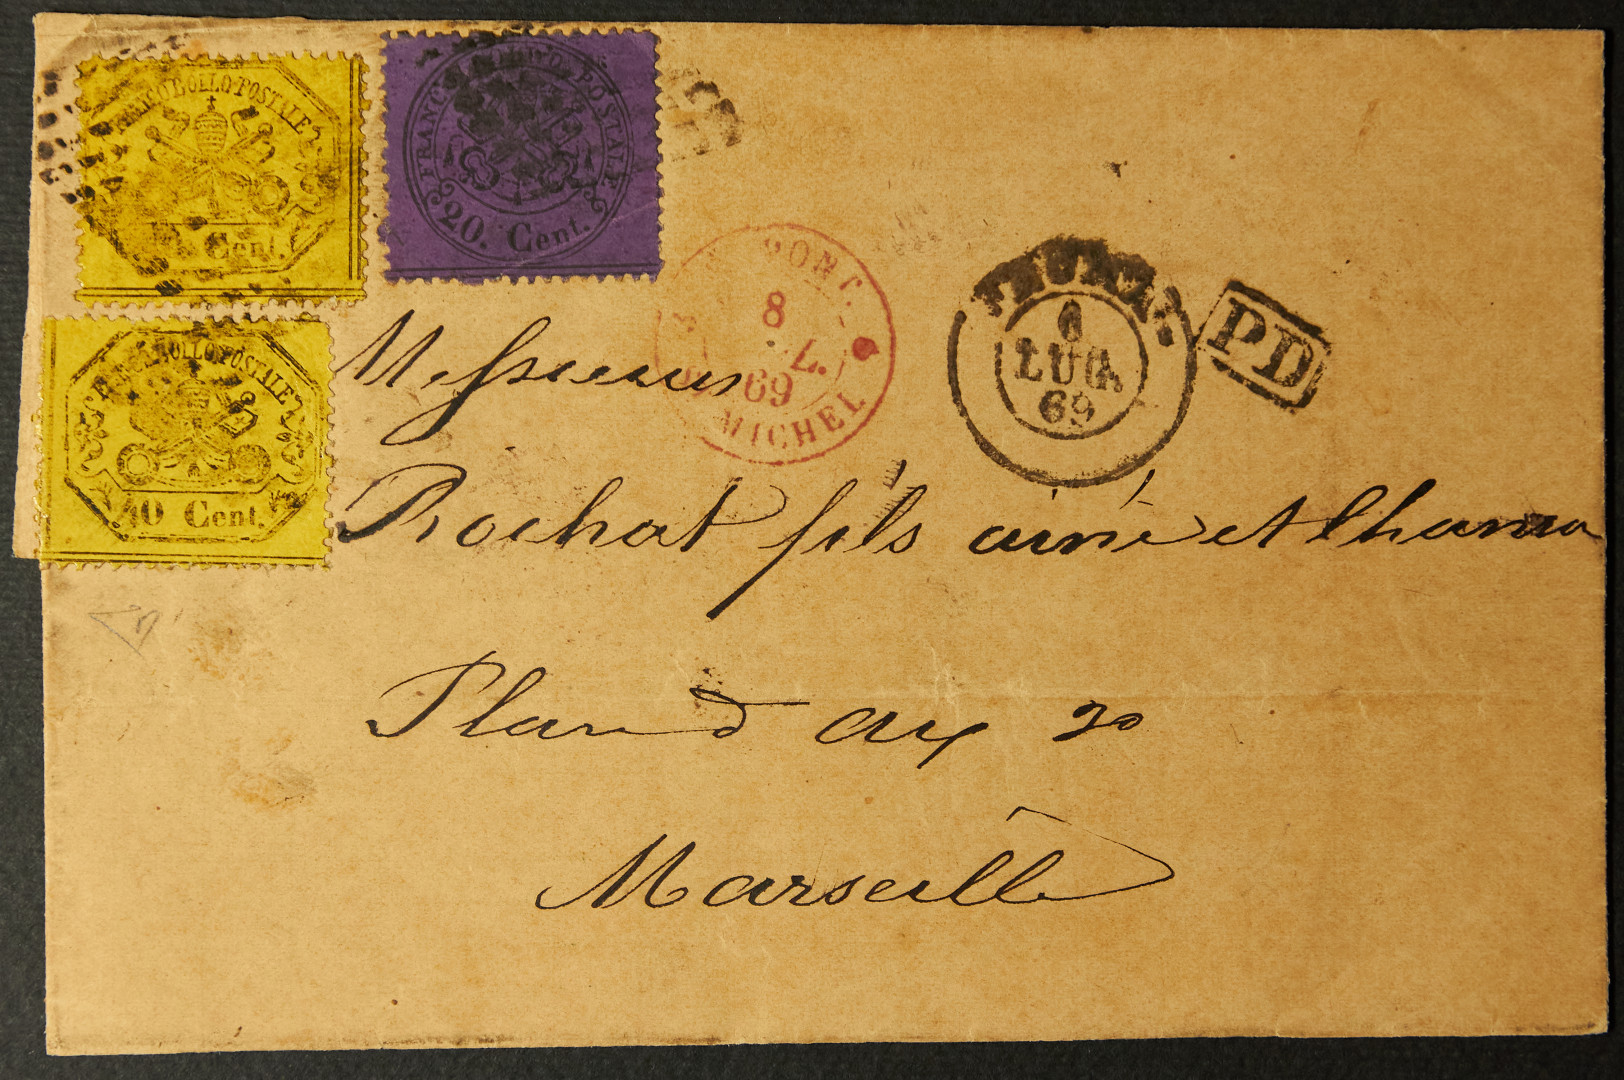 FRANCO BOLLO POSTALE
Cent.
FRANCO BOLLO POSTALE
20. Cent.
FRANCO BOLLO POSTALE
40 Cent.
PONT.
8
69
MICHEL
6
LUG.
69
PD
Messieurs
Rochat fils ainé et
Marseille